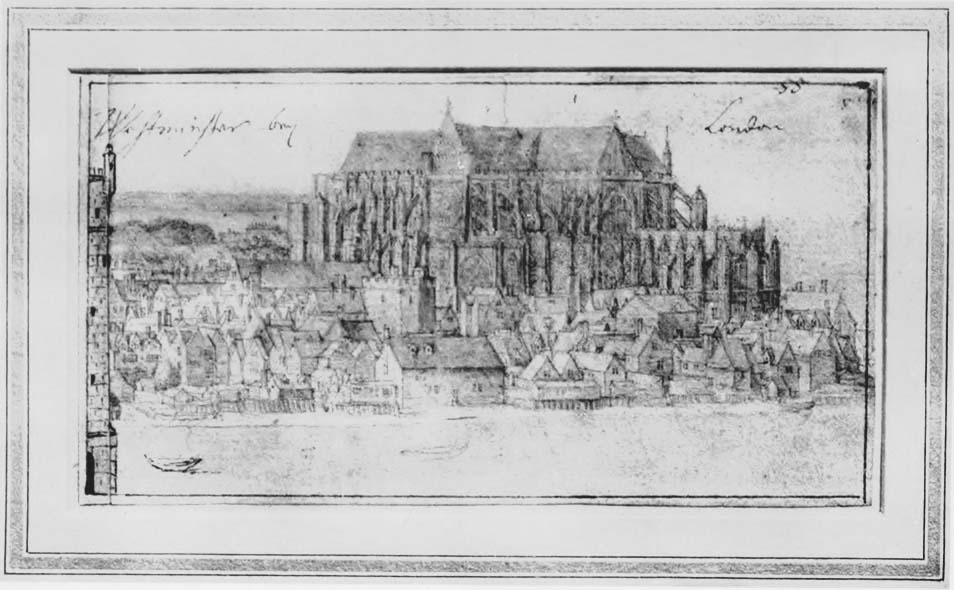 Westmünster bey London